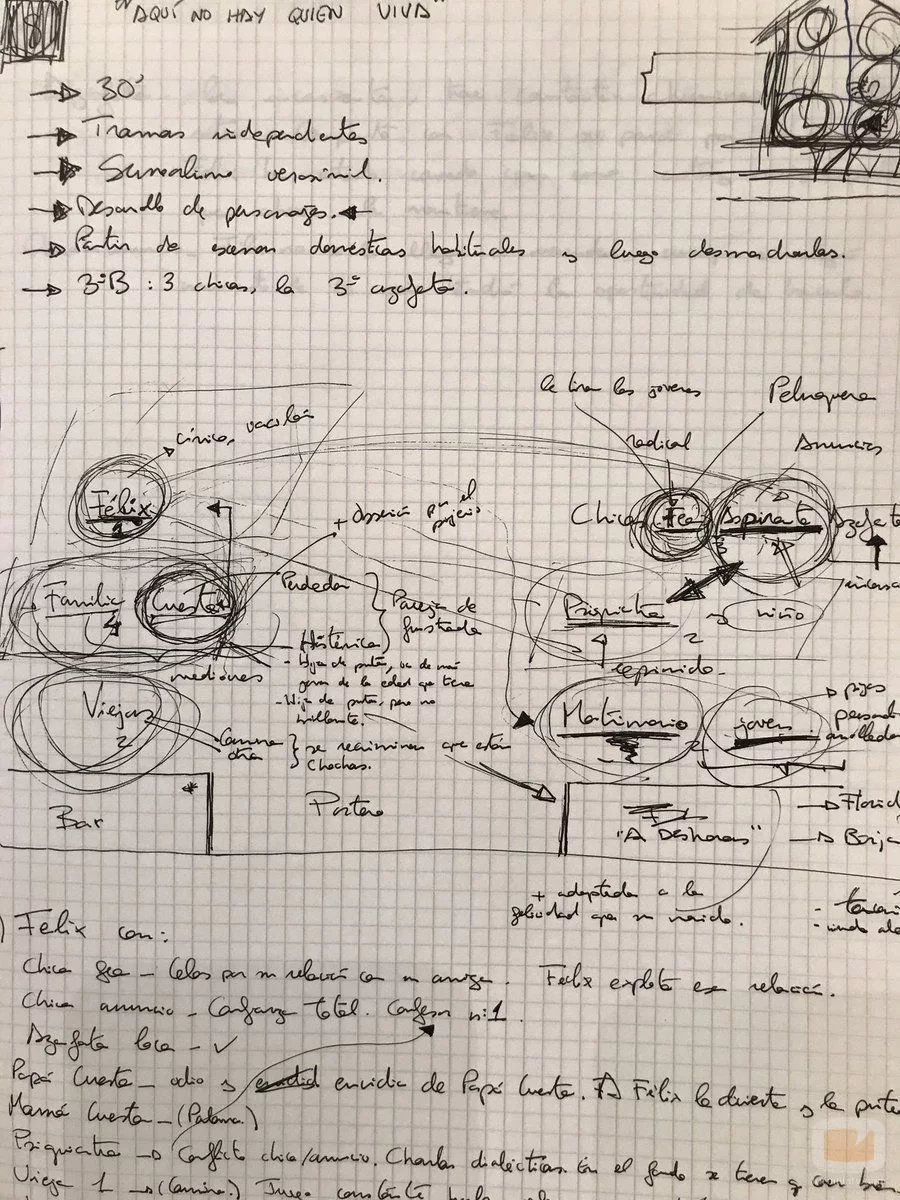 "AQUÍ NO HAY QUIEN VIVA"
→ 30'
→ Tramas independientes
→ Surrealismo verosímil.
→ Desarrollo de personajes. ←
→ Partir de escenas domésticas habituales y luego desmadrarlas.
→ 3ºB : 3 chicas, la 3ª azafata.
le tiran los jóvenes
Peluquera
radical
Anuncios
cínico, vacilón
Félix
1
Chicas
Fea
Aspirante
3
+ obsesión por el
prejuicio
Familia
4
Cuesta
Perdedor
Histérica
Pareja de
frustrados
Psiquiatra
2
niño
reprimido.
mediones
- Hija de puta, va de más
joven de la edad que tiene
- Hija de puta, pero no
brillante.
Viejas
2
Carmina
otra
se recriminan que están
chochas.
Matrimonio
joven
2
pijos
Bar
*
Portero
"A DESHORAS"
→ Borja
+ adaptada a la
felicidad que su marido.
Félix con:
Chica fea – Celos por su relación con su amiga. Félix explota esa relación.
Chica anuncio – Confianza total. Confesor nº 1.
Azafata loca – ✓
Papá Cuesta – odio y envidia de Papá Cuesta. A Félix le divierte y le
Mamá Cuesta – (Paloma.)
Psiquiatra → Conflicto chica/anuncio. Charlas dialécticas. En el fondo se tienen
Vieja 1 → (Carmina.) Juego constante